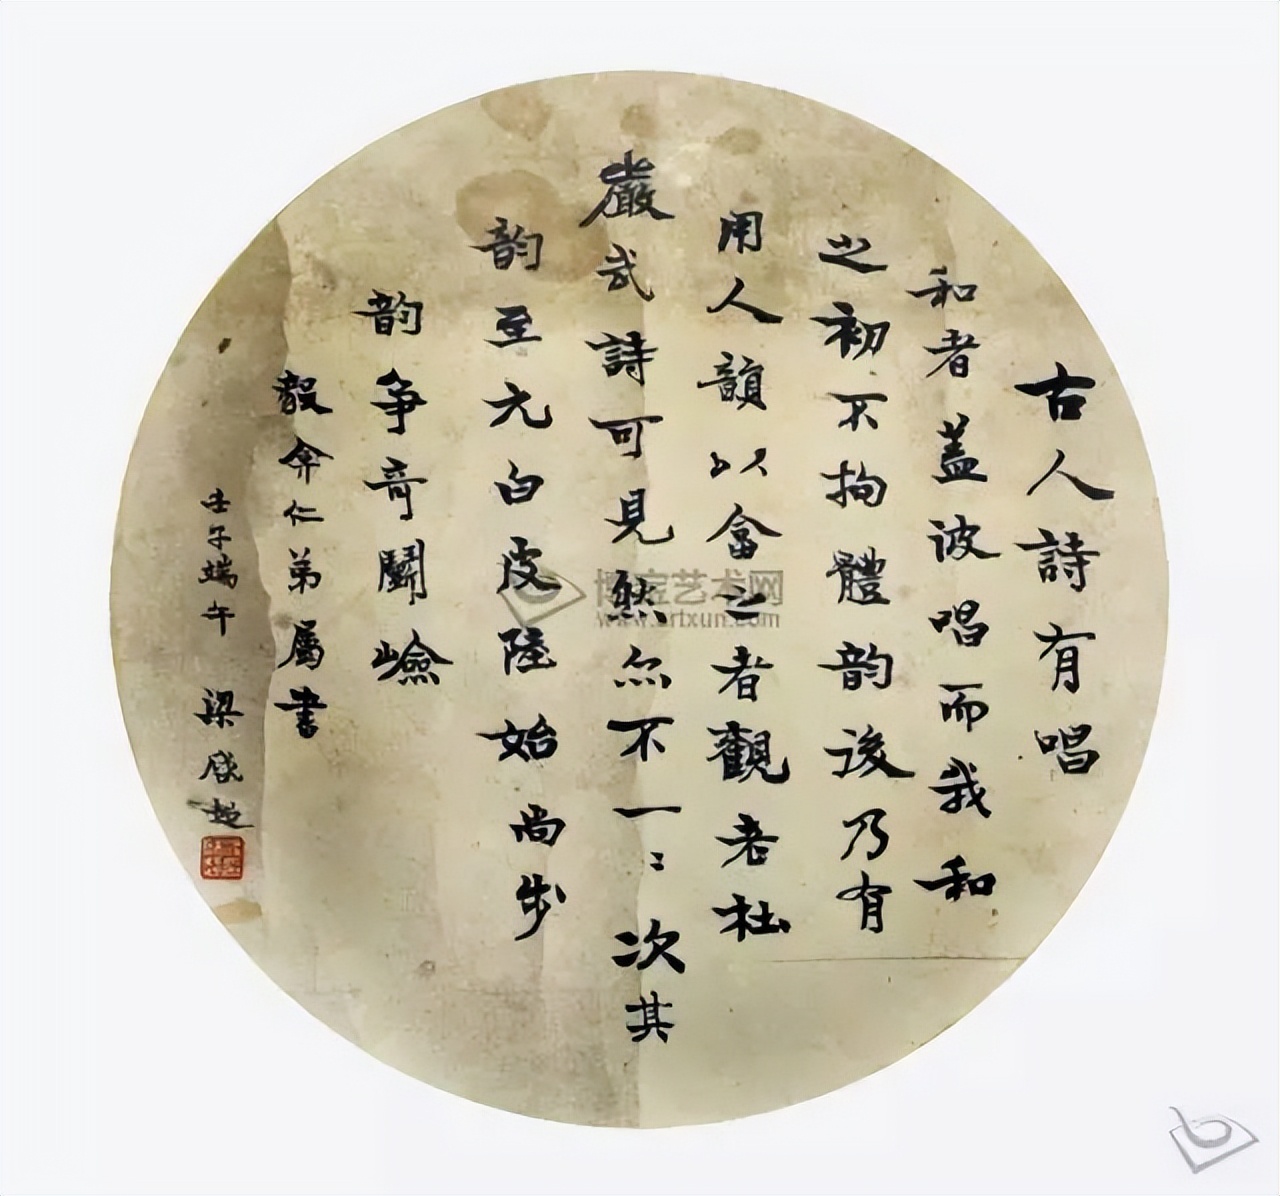 古人詩有唱
和者蓋彼唱而我和
之初不拘體韵後乃有
用人韻以畣之者觀老杜
嚴武詩可見然亦不一一次其
韵至元白皮陸始尚步
韵争奇鬭嶮
毅弇仁弟屬書
壬子端午 梁啟超
博宝艺术网
www.artxun.com